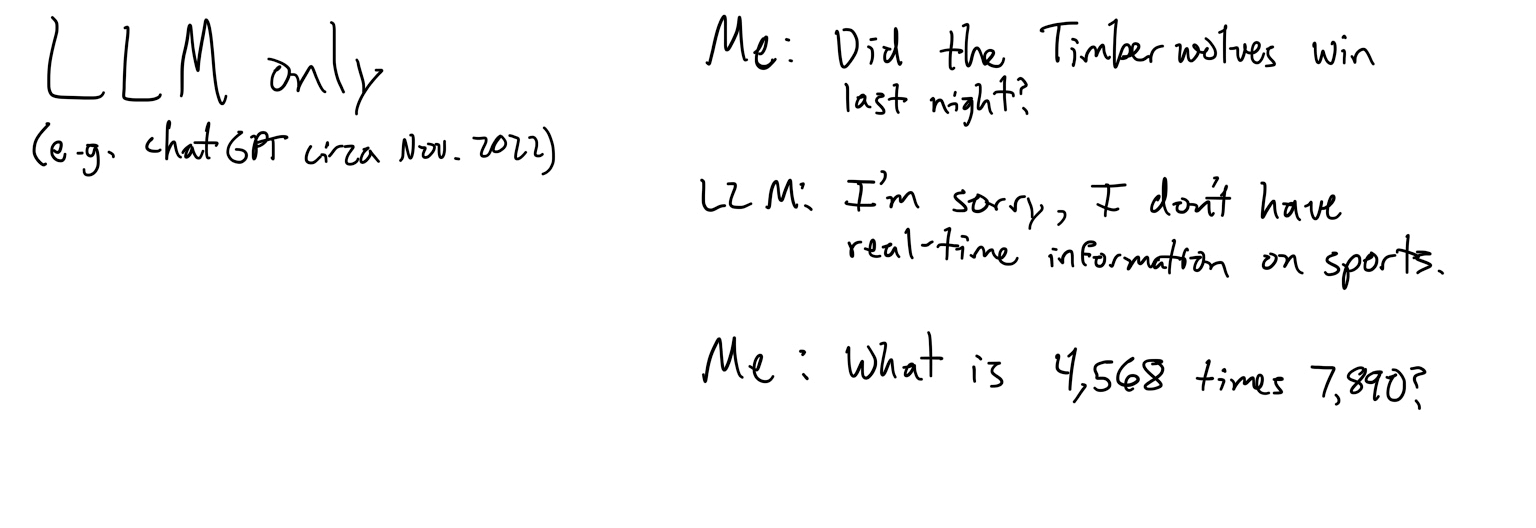 LLM only
(e.g. chatGPT circa Nov. 2022)
Me: Did the Timberwolves win
last night?
LLM: I'm sorry, I don't have
real-time information on sports.
Me: What is 4,568 times 7,890?